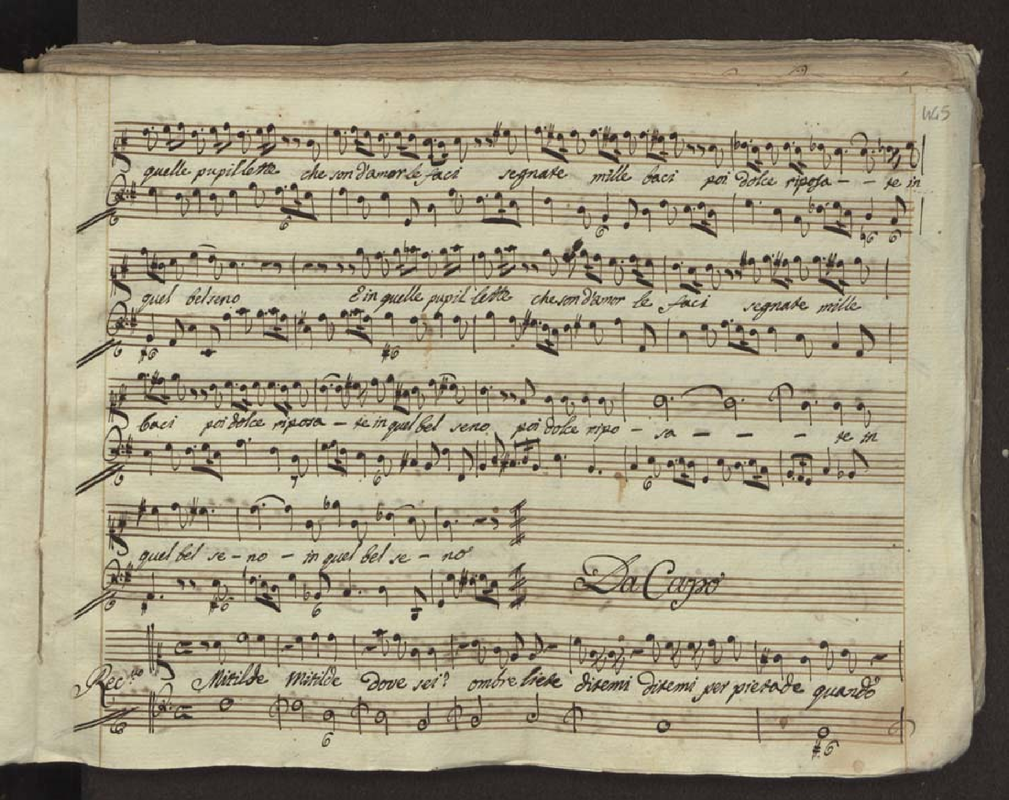 445
quelle pupillette che son d'amor le faci segnate mille baci poi dolce riposa - - te in
6 6 6 6
quel bel seno E in quelle pupillette che son d'amor le faci segnate mille
6 #6 #6
baci poi dolce riposa - te in quel bel seno poi dolce ripo - sa - - - - te in
6 6 6
quel bel se - no - in quel bel se - no
Da Capo
6 6 6
Rec.vo Mitilde Mitilde dove sei? ombre liete ditemi ditemi per pietade quando
6 #6